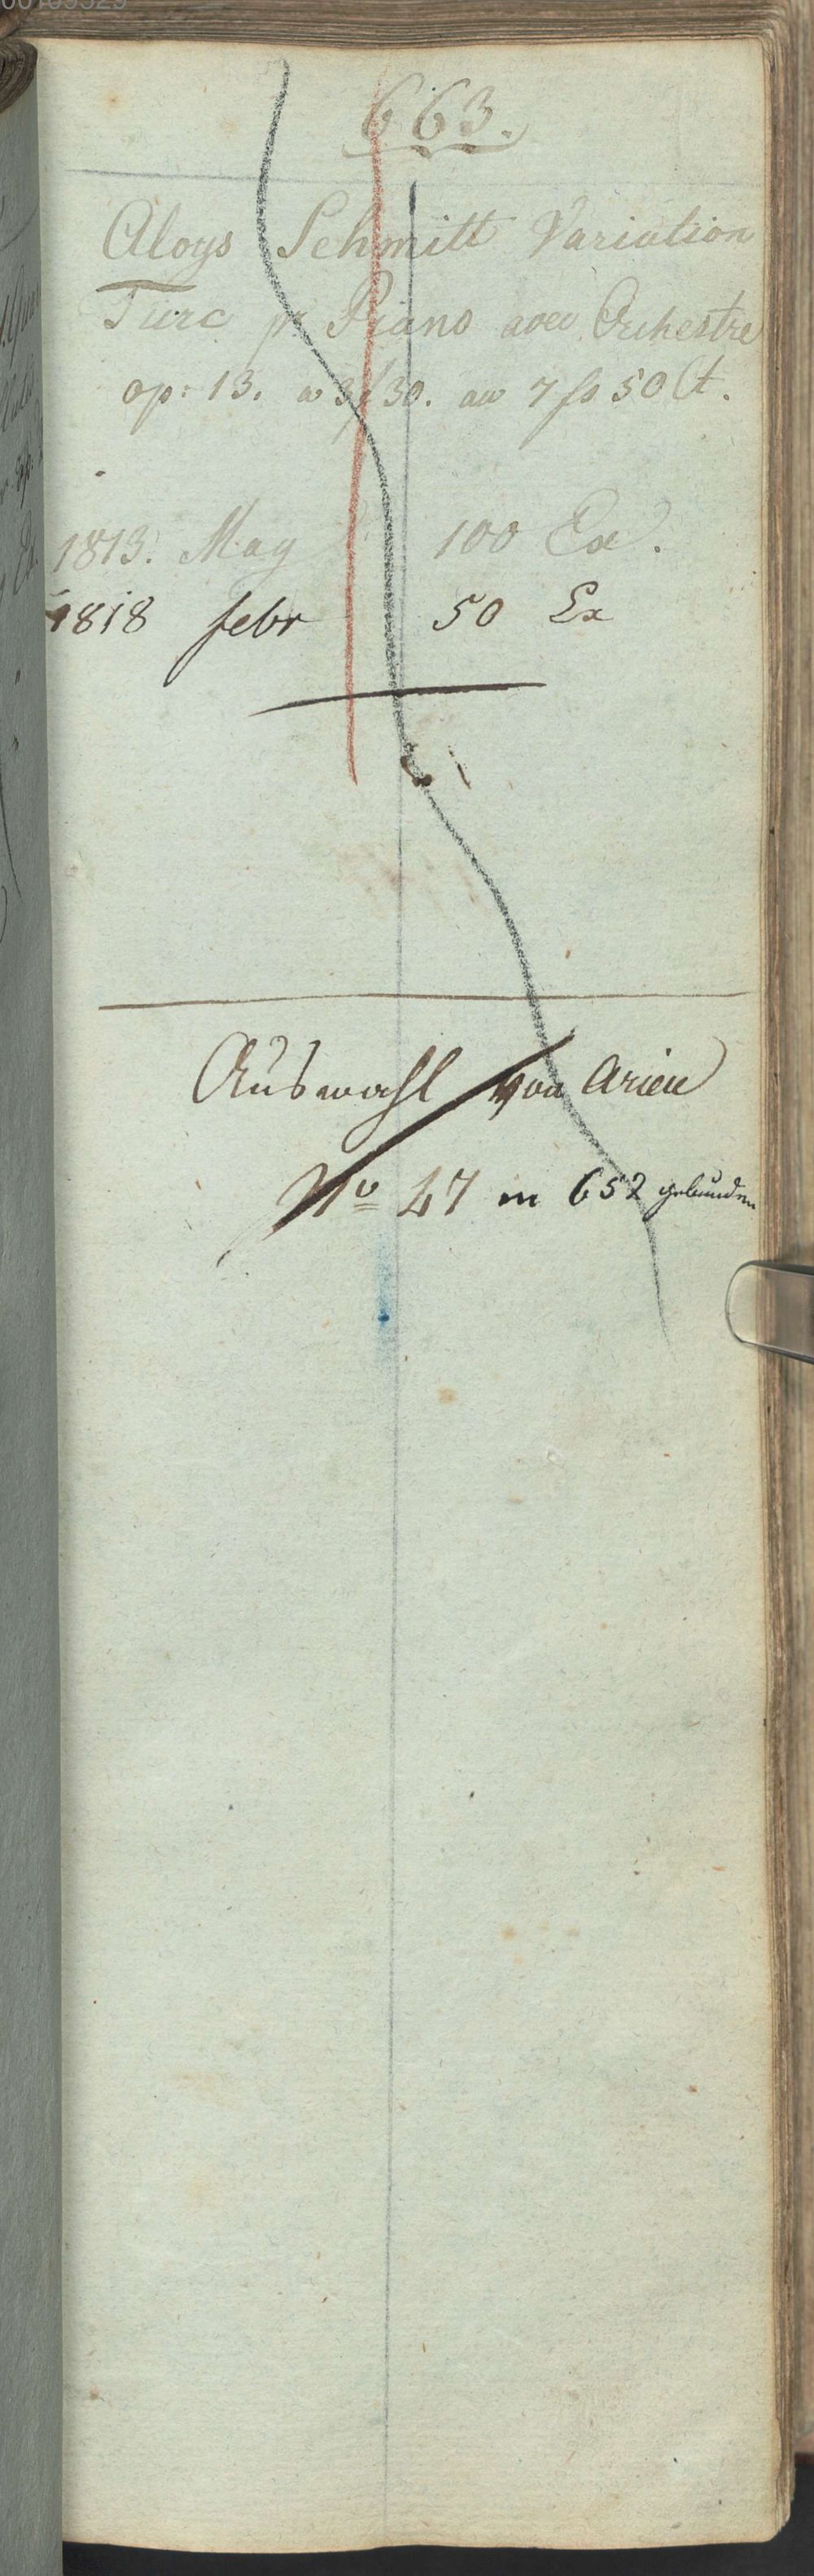 663.
Aloys Schmitt Variation
Turc pr Piano avec Orchestre
op: 13. a 3f 30. au 7 fs 50 Ct.
1813. May 100 Ex.
1818 febr 50 Ex
Auswahl von Arien
No 47 in 652 gebunden